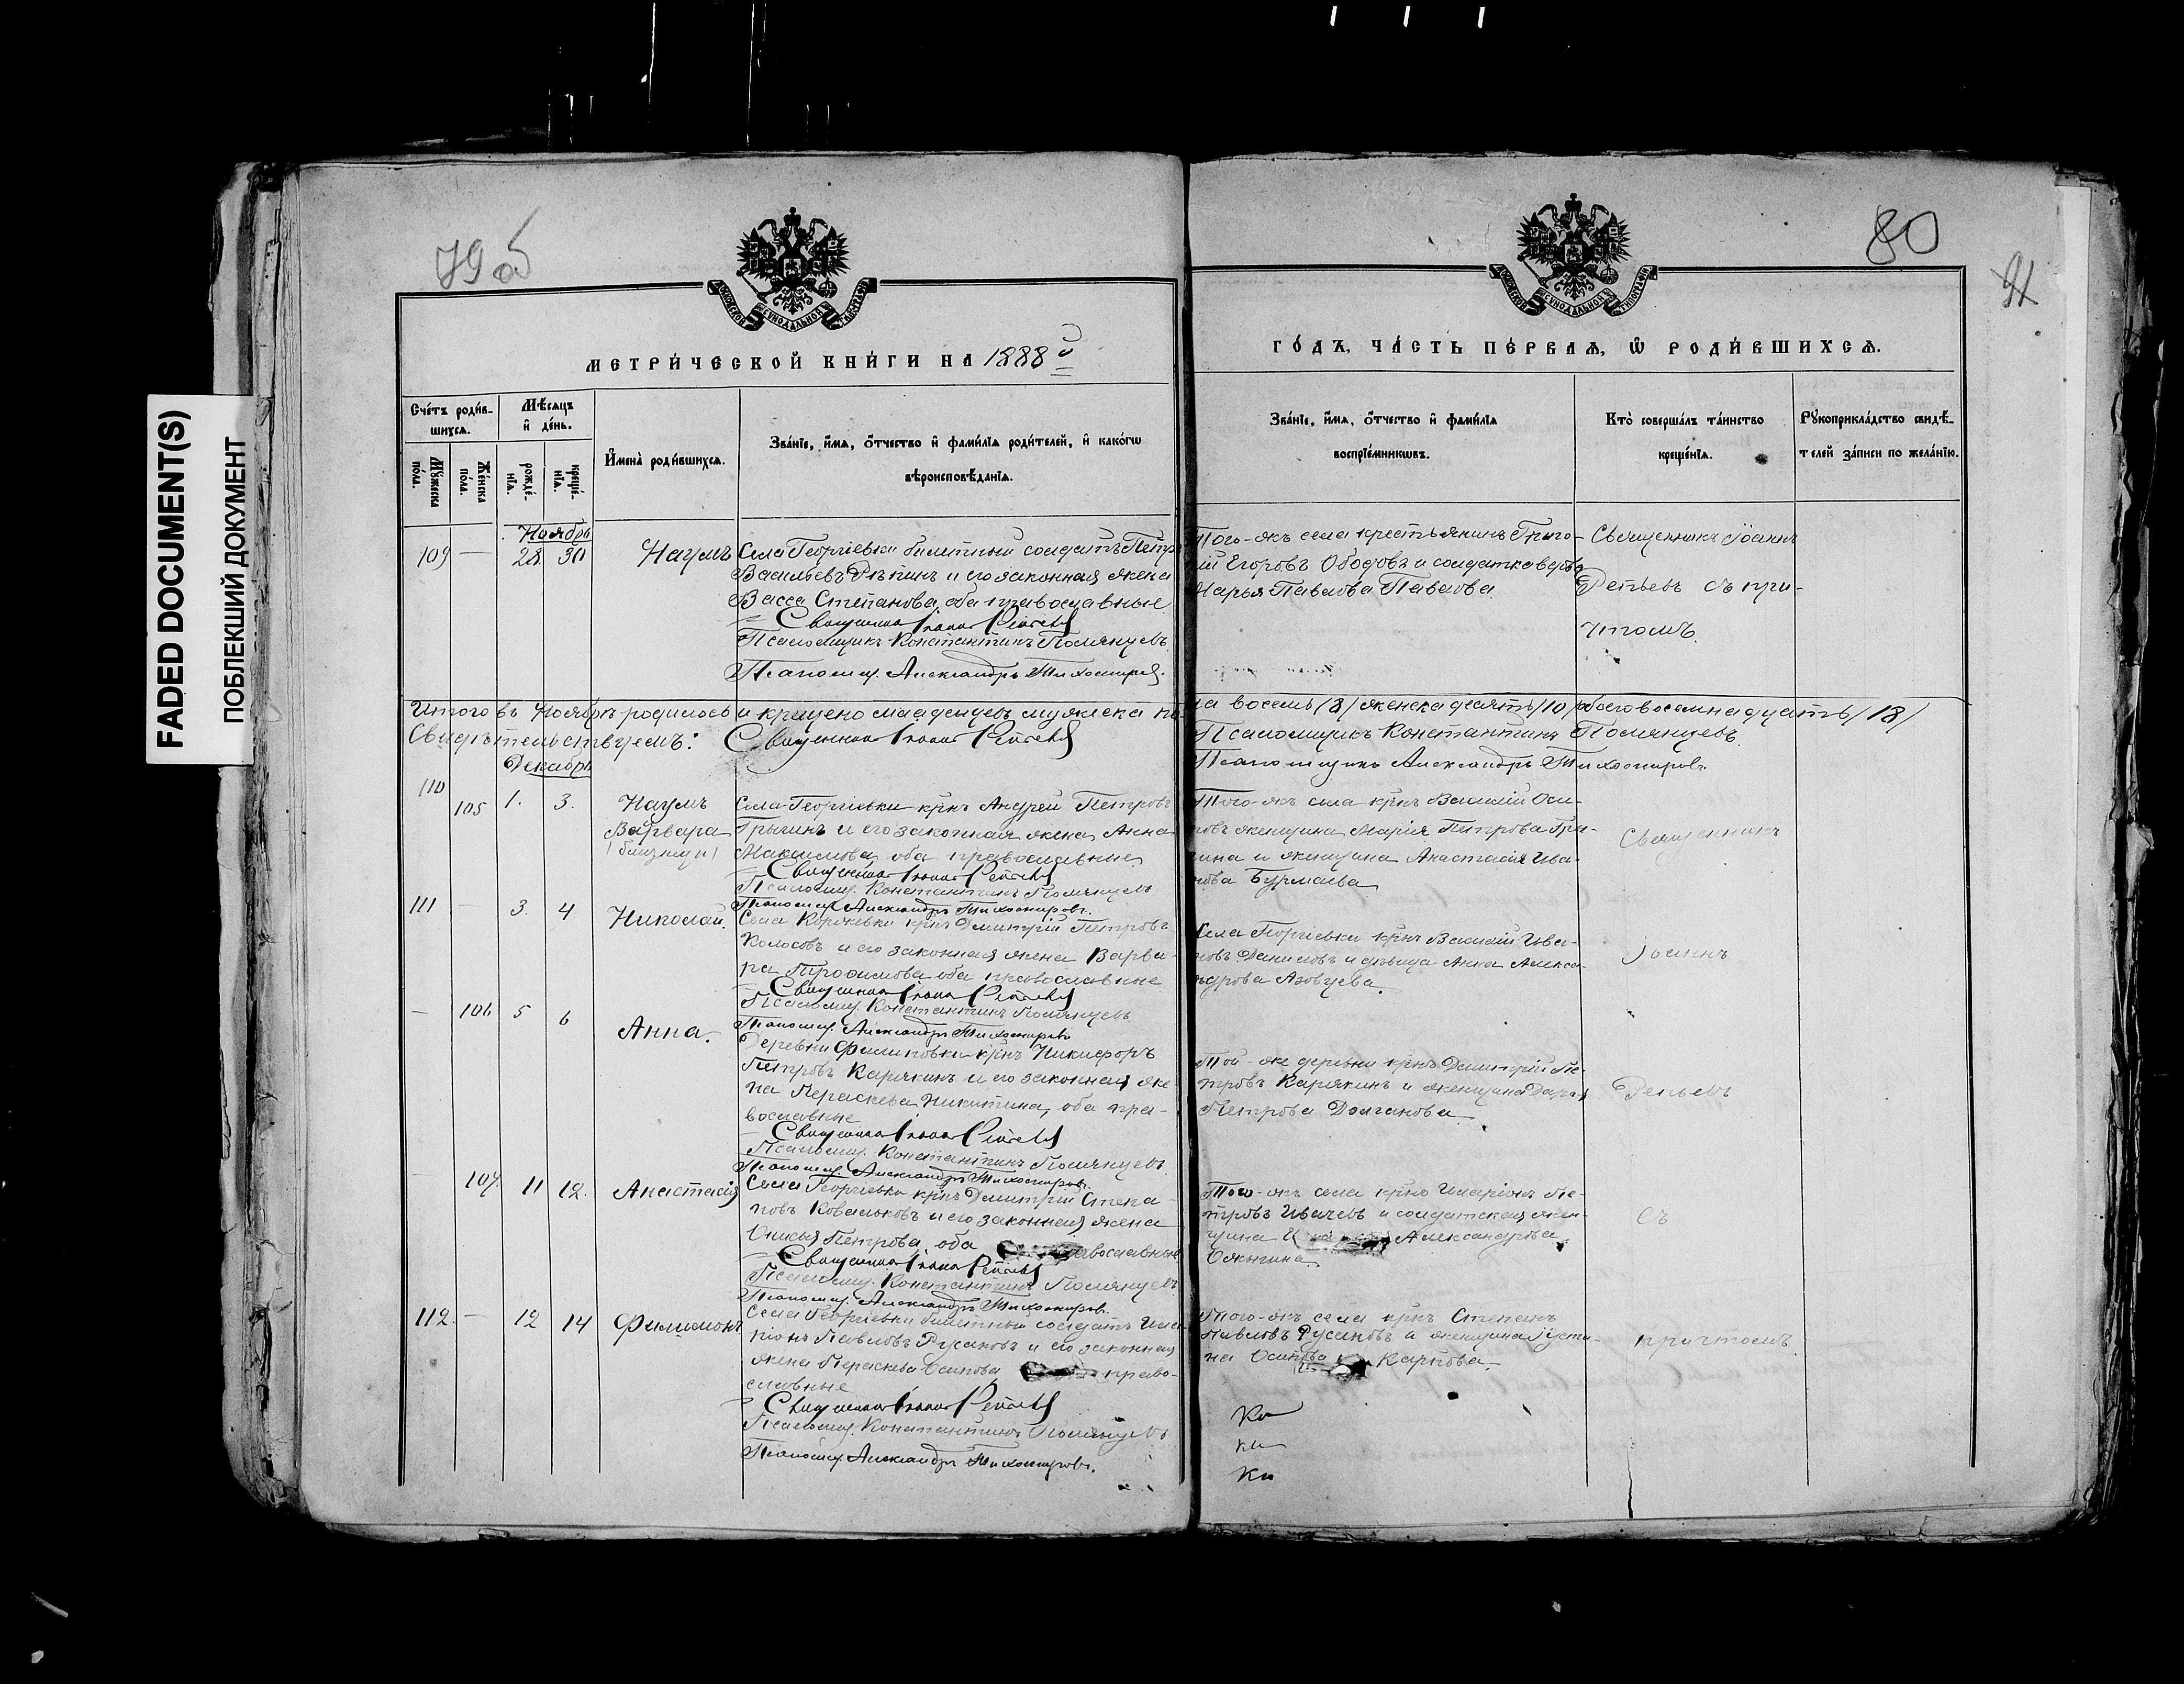 FADED DOCUMENT(S)
ПОБЛЕКШИЙ ДОКУМЕНТ
79 об
80
МЕТРИ́ЧЕСКОЙ КНИ́ГИ НА 1888й
ГО́ДЪ, ЧА́СТЬ ПЕ́РВАѦ, Ѡ҆ РОДИ́ВШИХСѦ.
Сче́тъ роди́в-
шихсѧ.
Мꙋ́жеска по́ла.
Же́нска по́ла.
Мѣ́сѧцъ и҆ де́нь.
рожде́-нїѧ.
креще́-нїѧ.
И҆мена̀ роди́вшихсѧ.
Зва́нїе, и҆́мѧ, ѻ҆́тчество и҆ фами́лїѧ роди́телей, и҆ како́гѡ
вѣроисповѣ́данїѧ.
Зва́нїе, и҆́мѧ, ѻ҆́тчество и҆ фами́лїѧ
воспрїе́мникѡвъ.
Кто̀ соверша́лъ та́инство
креще́нїѧ.
Рꙋкоприкла́дство свидѣ́-
телей за́писи по жела́нїю.
Ноябрь
109 — 28 30 Наумъ
Села Георгіевки билетный солдатъ Петръ
Васильевъ Рѣпинъ и его законная жена
Васса Степанова, оба православные
Священникъ Іоаннъ Репьевъ
Псаломщикъ Константинъ Помянцевъ
Псаломщ. Александръ Тихомировъ.
Того-жъ села крестьянинъ Григо-
рій Егоровъ Ободовъ и солдатка вдова
Марья Павлова Павлова
Священникъ Іоаннъ
Репьевъ съ при-
чтомъ.
Итого въ Ноябрѣ родилось и крещено младенцевъ мужеска по-ла восемь /8/ женска десять /10/ обоего восемнадцать /18/
Свидѣтельствуемъ: Священникъ Іоаннъ Репьевъ Псаломщикъ Константинъ Помянцевъ
Псаломщикъ Александръ Тихомировъ.
Декабрь
110 105 1. 3. Наумъ
Варвара
(близнецы)
Села Георгіевки крнъ Андрей Петровъ
и его законная жена Анна
Максимова, оба православные
Священникъ Іоаннъ Репьевъ
Псаломщ. Константинъ Помянцевъ
Псаломщ. Александръ Тихомировъ.
Того-жъ села крнъ Василій Оси-
повъ женщина Марія Петрова Гри-
ина и женщина Анастасія Ива-
нова Бурмаева
Священникъ
111 — 3. 4 Николай.
Села крнъ Дмитрій Петровъ
Колосовъ и его законная жена Варва-
ра Трофимова оба православные
Священникъ Іоаннъ Репьевъ
Псаломщ. Константинъ Помянцевъ
Псаломщ. Александръ Тихомировъ
Села Георгіевки крнъ Василій Ива-
новъ Даниловъ и дѣвица Анна Алекса-
ндрова Азовцева.
Іоаннъ
— 106 5 6 Анна.
Деревни Филиповки крнъ Никифоръ
Петровъ Карякинъ и его законная же-
на Пераскева Никитина, оба пра-
вославные
Священникъ Іоаннъ Репьевъ
Псаломщ. Константинъ Помянцевъ
Псаломщ. Александръ Тихомировъ.
Той-же деревни крнъ Димитрій Пе-
тровъ Карякинъ и женщина Дарья
Петрова Долганова
Репьевъ
— 107. 11 12. Анастасія
Села Георгіевки крнъ Дмитрій Степа-
новъ Ковальковъ и его законная жена
Петрова, оба православные
Священникъ Іоаннъ Репьевъ
Псаломщ. Константинъ Помянцевъ
Псаломщ. Александръ Тихомировъ.
Того-жъ села крнъ Иларіонъ Пе-
тровъ Ивачевъ и солдатская жен-
щина Александрова
съ
112. — 12 14 Филимонъ
Села Георгіевки билетный солдатъ Ила-
ріонъ Павловъ Русаковъ и его законная
жена Пераскева Осипова право-
славные
Священникъ Іоаннъ Репьевъ
Псаломщ. Константинъ Помянцевъ
Псаломщ. Александръ Тихомировъ.
Того-жъ села крнъ Степанъ
Павловъ Русаковъ и женщина Іусти-
на Осипова Карпова.
причтомъ.